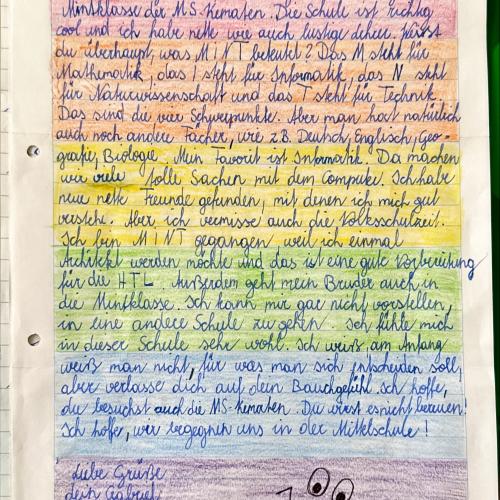 Mintklasse der MS-Kematen. Die Schule ist richtig
cool und ich habe nette wie auch lustige Lehrer. Weißt
du überhaupt, was MiNT bedeutet? Das M steht für
Mathematik, das I steht für Informatik, das N steht
für Naturwissenschaft und das T steht für Technik.
Das sind die vier Schwerpunkte. Aber man hat natürlich
auch noch andere Fächer, wie z.B. Deutsch, Englisch, Geo-
grafie, Biologie. Mein Favorit ist Informatik. Da machen
wir viele tolle Sachen mit dem Computer. Ich habe
neue nette Freunde gefunden, mit denen ich mich gut
verstehe. Aber ich vermisse auch die Volksschulzeit.
Ich bin MINT gegangen weil ich einmal
Architekt werden möchte und das ist eine gute Vorbereitung
für die HTL. Außerdem geht mein Bruder auch in
die Mintklasse. Ich kann mir gar nicht vorstellen,
in eine andere Schule zu gehen. Ich fühle mich
in dieser Schule sehr wohl. Ich weiß, am Anfang
weiß man nicht, für was man sich entscheiden soll,
aber verlasse dich auf dein Bauchgefühl. Ich hoffe,
du besuchst auch die MS-Kematen. Du wirst es nicht bereuen!
Ich hoffe, wir begegnen uns in der Mittelschule!
Liebe Grüße
dein Gabriel